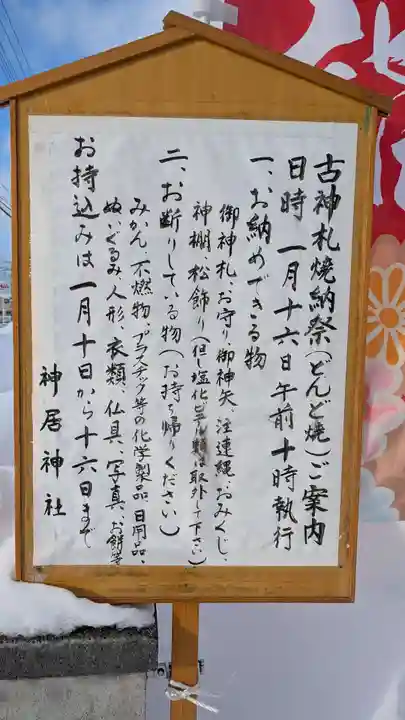 古神札焼納祭(どんど焼)ご案内
日時 一月十六日午前十時執行
一、お納めできる物
御神札、お守り、御神矢、注連縄、おみくじ、
神棚、松飾り(但し塩化ビニール類は取外して下さい)
二、お断りしている物(お持ち帰りください)
みかん、不燃物、プラスチック等の化学製品、日用品、
ぬいぐるみ、人形、衣類、仏具、写真、お餅等
お持込みは一月十日から十六日まで
神居神社